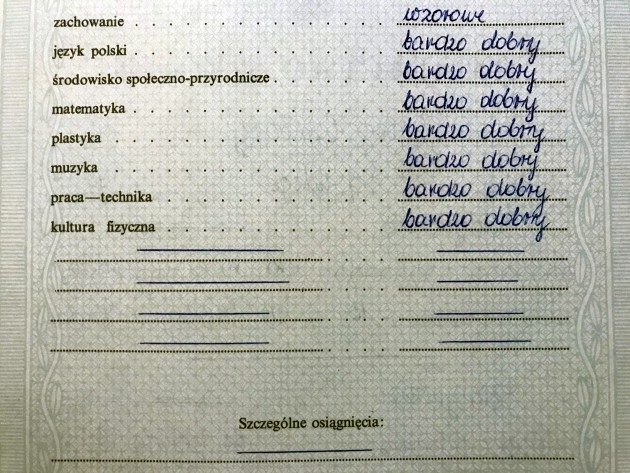 zachowanie . . . . . . . . . . . . . wzorowe
język polski . . . . . . . . . . . . . bardzo dobry
środowisko społeczno-przyrodnicze . . . . . . bardzo dobry
matematyka . . . . . . . . . . . . . bardzo dobry
plastyka . . . . . . . . . . . . . . bardzo dobry
muzyka . . . . . . . . . . . . . . bardzo dobry
praca—technika . . . . . . . . . . . . bardzo dobry
kultura fizyczna . . . . . . . . . . . . bardzo dobry
Szczególne osiągnięcia: